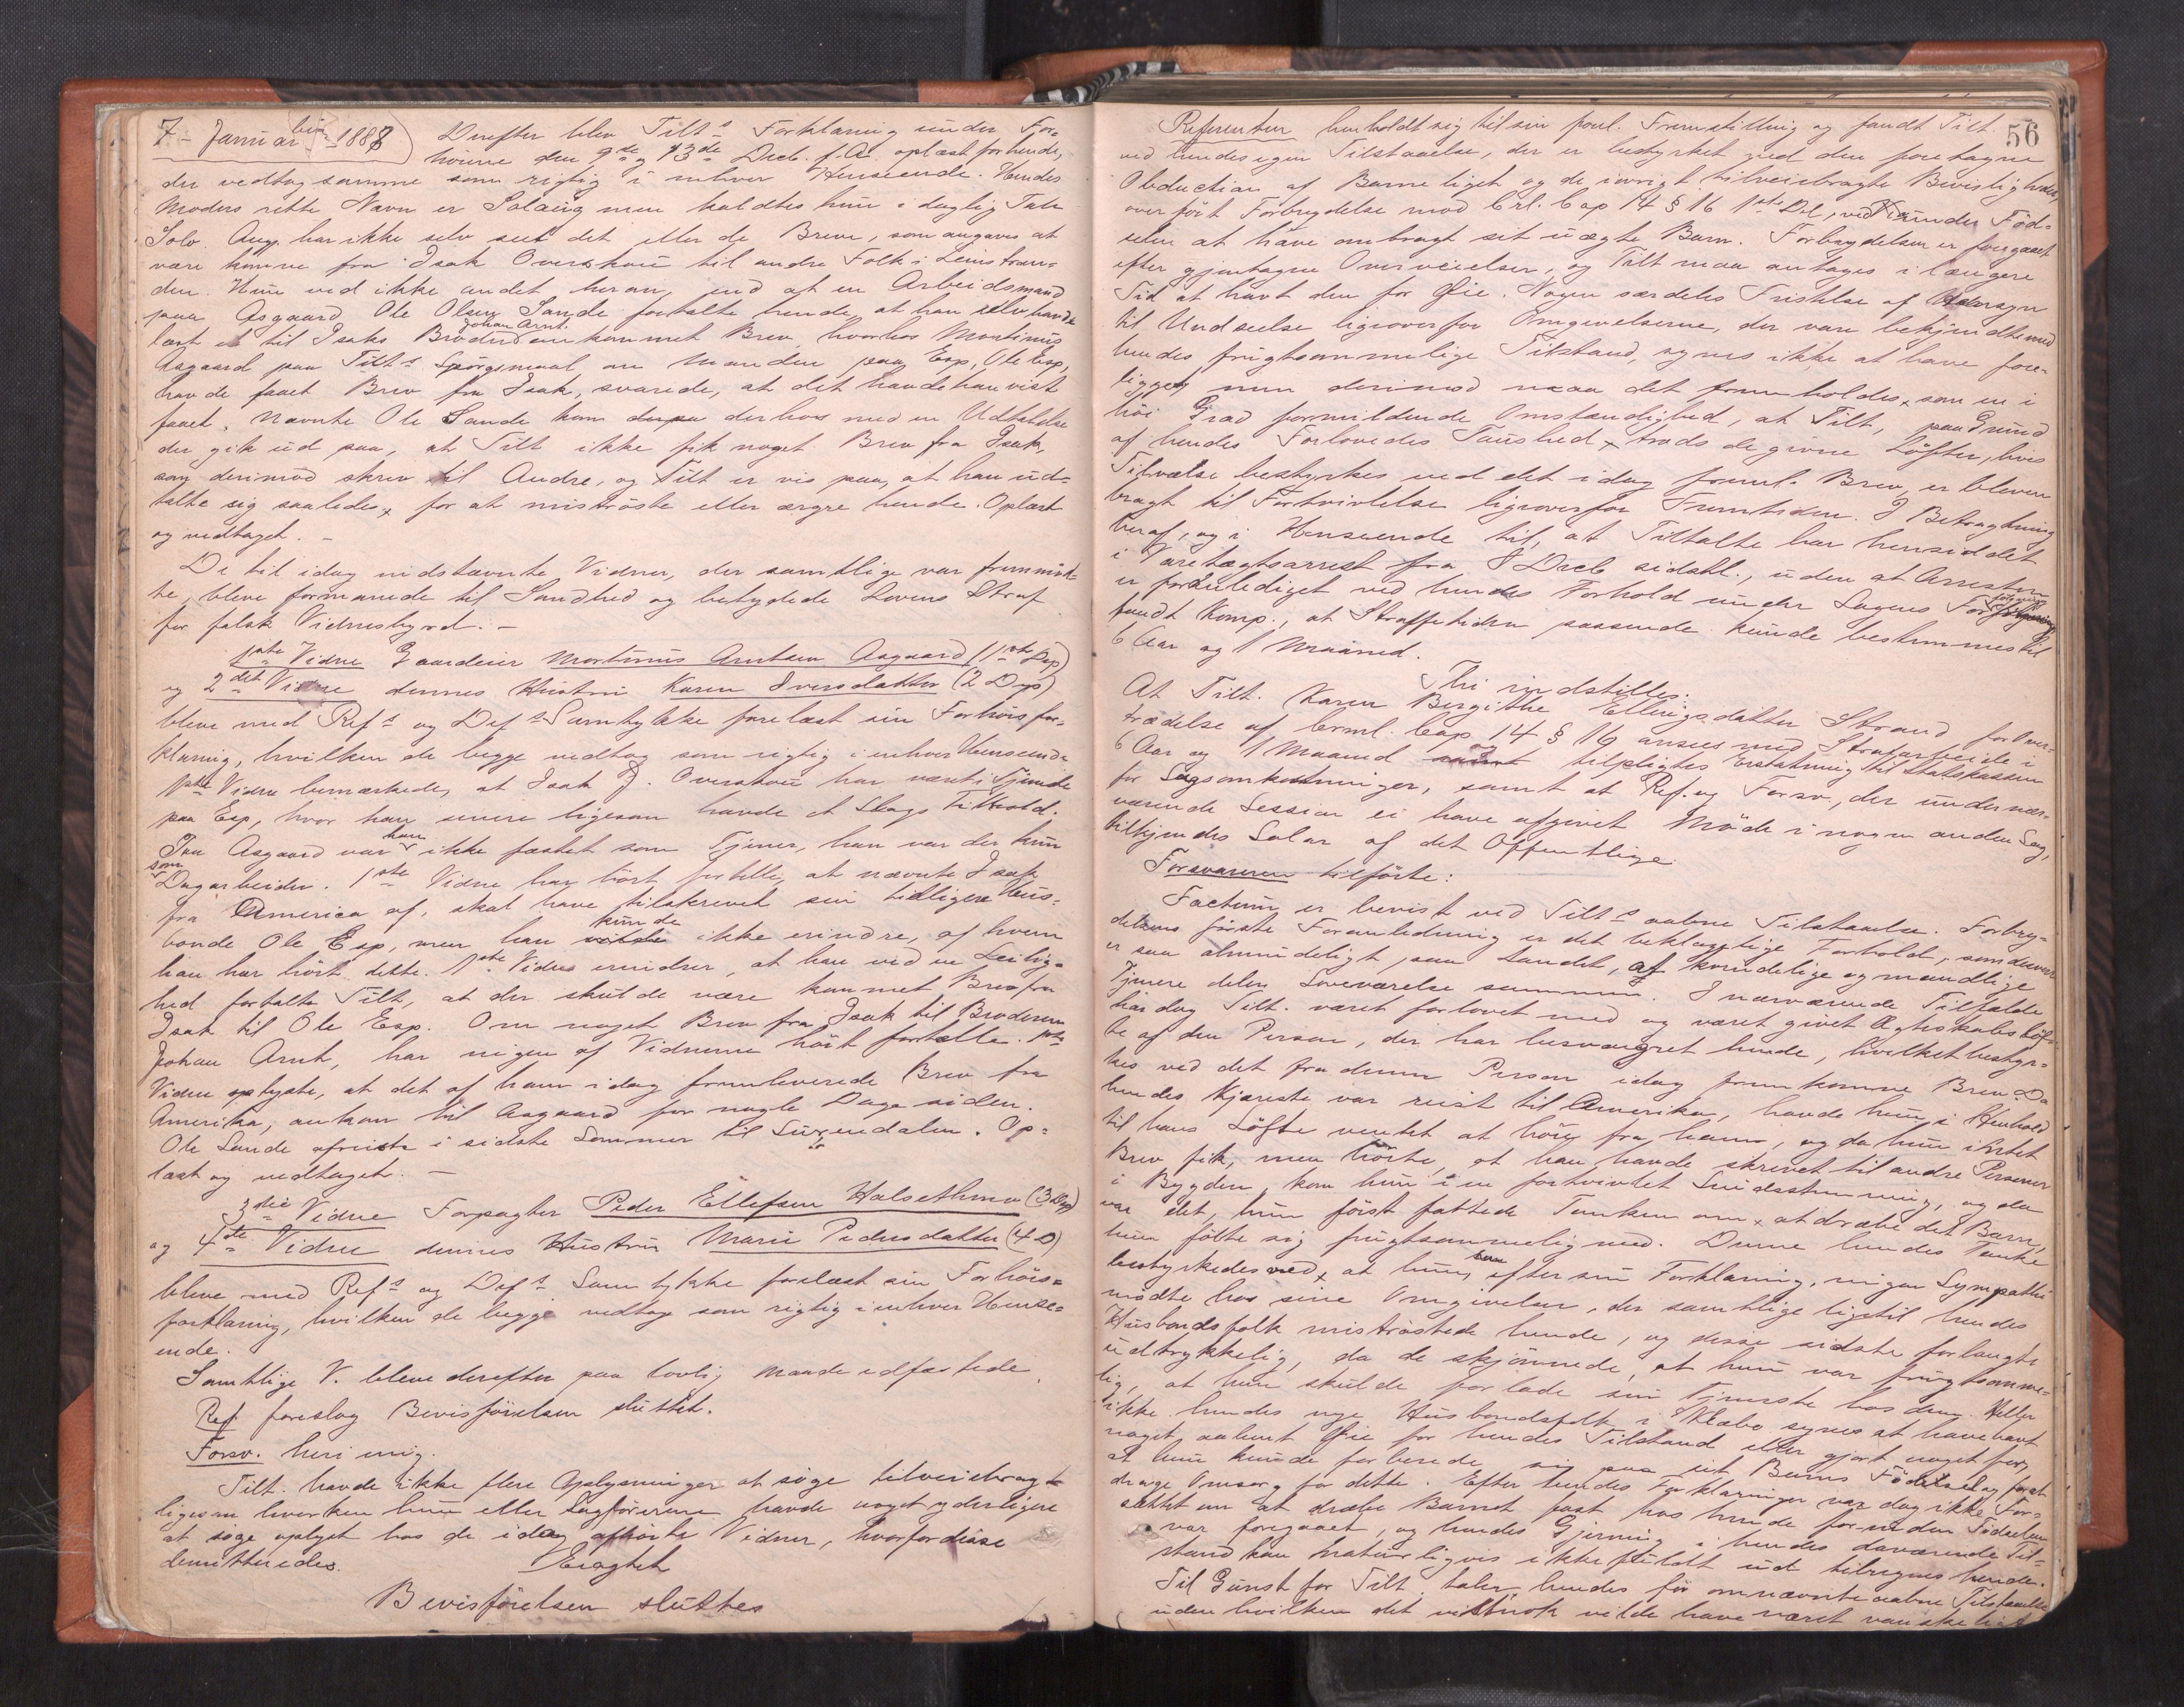 7 Januar 1888) Derefter blev Tilts Forklaring under For-
hörene den 9de og 13de Decb. f.A. oplæst for hende,
der vedtog samme som rigtig i enhver Henseende. Hendes
Moders rette Navn er Solaug men kaldtes hun i daglig Tale
Solv. Ang. har ikke selv seet det eller de Breve, som angaves at
være komne fra Isak Overskou til andre Folk i Leinstran-
den. Hun ved ikke andet herom, end at en Arbeidsmand
paa Asgaard Ole Olsen Sande fortalte hende, at han selv havde
læst et til Isaks Broder Johan Arnt ankommet Brev, hvorhos Mortinus
Asgaard paa Tilts Spörgsmaal om Manden paa Esp, Ole Esp,
havde faaet Brev fra Isak, svarede, at det havde han vist
faaet. Nævnte Ole Sande kom derhos med en Udtalelse
der gik ud paa, at Tilt ikke fik noget Brev fra Isak,
som derimod skrev til Andre, og Tilt er vis paa, at han ud-
talte sig saaledes, for at miströste eller ærgre hende. Oplæst
og vedtaget. –
De til idag indstævnte Vidner, der samtlige var fremmöd-
te, bleve formanede til Sandhed og betydede Lovens Straf
for falsk Vidnesbyrd. –
1ste Vidne Gaardeier Mortinus Arntsen Asgaard (1ste Dep)
og 2det Vidne dennes Hustru Karen Iversdatter (2 Dep)
bleve med Refs og Defs Samtykke forelæst sin Forhörsfor-
klaring, hvilken de begge vedtog som rigtig i enhver Henseende
1ste Vidne bemærkede, at Isak J. Overskou har været i Tjeneste
paa Esp, hvor han senere ligesom havde et Slags Tilhold.
Paa Asgaard var han ikke fæstet som Tjener, han var der kun
som Dagarbeider. 1ste Vidne har hört fortelle, at nævnte Isak
fra America af, skal have tilskrevet sin tidligere Hus-
bonde Ole Esp, men han kunde ikke erindre, af hvem
han har hört dette. 1ste Vidne erindrer, at han ved en Leilig-
hed fortalte Tilt, at der skulde være kommet Brev fra
Isak til Ole Esp. Om noget Brev fra Isak til Broderen
Johan Arnt, har ingen af Vidnerne hört fortælle. 1ste
Vidne oplyste, at det af ham idag fremleverede Brev fra
Amerika, ankom til Asgaard for nogle Dage siden.
Ole Sande afreiste i sidste Sommer til Surendalen. Op-
læst og vedtaget. –
3die Vidne Forpagter Peder Ellefsen Halsethmo (3 Dep)
og 4de Vidne dennes Hustru Marie Pedersdatter (4 D)
bleve med Refs og Defs Samtykke forelæst sin Forhörs-
forklaring, hvilken de begge vedtog som rigtig i enhver Hense-
ende.
Samtlige V. bleve derefter paa lovlig Maade edfæstede.
Ref. foreslog Bevisförelsen sluttet.
Forsv. heri enig.
Tilt. havde ikke flere Oplysninger at söge tilveiebragt
ligesom hverken hun eller Sagförerne havde noget yderligere
at söge oplyst hos de idag afhörte Vidner, hvorfor disse
demitteredes. Eragtet
Bevisförelsen sluttes
56
Referenten henholdt sig til sin forel. Fremstilling og fandt Tilt.
ved hendes egen Tilstaaelse, der er bestyrket ved den foretagne
Obduction af Barneliget og de iövrigt tilveiebragte Bevisligheder,
overfört Forbrydelse mod Crl. Cap 14 § 16 1ste Del, ved under Föd-
selen at have ombragt sit uægte Barn. Forbrydelsen er foregaaet
efter gjentagne Overveielser, og Tilt maa antages i længere
Tid at havt den for Öie. Nogen særdeles Fristelse af Hensyn
til Undseelse ligeoverfor Omgivelserne, der vare bekjendte med
hendes frugtsommelige Tilstand, synes ikke at have fore-
ligget, men derimod maa det fremholdes, som en i
höi Grad formildende Omstændighed, at Tilt, paa Grund
af hendes Forlovedes Taushed, trods de givne Löfter, hvis
Tilværelse bestyrkes ved det idag freml. Brev, er bleven
bragt til Fortvivlelse ligeoverfor Fremtiden. I Betragtning
heraf, og i Henseende til, at Tiltalte har hensiddet
i Varetægtsarrest fra 8 Decb sidstl., uden at Arresten
er foranlediget ved hendes Forhold under Sagens Forfölgning
fandt Komp., at Straffetiden passende kunde bestemmes til
6 Aar og 1 Maaned.
Thi indstilles:
At Tilt. Karen Bergithe Ellingsdatter Strand for Over-
trædelse af Crml. Cap 14 § 16 ansees med Strafarbeide i
6 Aar og 1 Maaned og tilpligtes Erstatning til Statskassen
for Sagsomkostninger, samt at Ref. og Forsv., der under nær-
værende Session ei have afgivet Möde i nogen anden Sag,
tilkjendes Salær af det Offentlige.
Forsvareren tilförte:
Factum er bevist ved Tilts aabne Tilstaaelse. Forbry-
delsens förste Foranledning er det beklagelige Forhold, som desværre
er saa almindeligt paa Landet, at kvindelige og mandlige
Tjenere deler Soveværelse sammen. I nærværende Tilfælde
har dog Tilt. været forlovet med og været givet Ægteskabslöf-
te af den Person, der har besvangret hende, hvilket bestyr-
kes ved det fra denne Person idag fremkomne Brev. Da
hendes Kjæreste var reist til Amerika, havde hun i Henhold
til hans Löfte ventet at höre fra ham, og da hun intet
Brev fik, men hörte, at han havde skrevet til andre Personer
i Bygden, kom hun i en fortvivlet Sindsstemning, og da
var det, hun först fattede Tanken om, at dræbe det Barn,
hun fölte sig frugtsommelig med. Denne hendes Tanke
bestyrkedes ved, at hun, efter sin Forklaring, ingen Sympathi
mödte hos sine Omgivelser, der samtlige ligetil hendes
Husbondsfolk miströstede hende, og disse sidste forlangte
udtrykkelig, da de skjönnede, at hun var frugtsomme-
lig, at hun skulde forlade sin Tjeneste hos dem. Heller
ikke hendes nye Husbondsfolk i Klæbo synes at have havt
noget aabent Öie for hendes Tilstand eller gjort noget for,
at hun kunde forberede sig paa sit Barns Födsel og for at
drage Omsorg for dette. Efter hendes Forklaringer var dog ikke For-
sættet om at dræbe Barnet fast hos hende for inden Födselen
var foregaaet, og hendes Gjerning i hendes daværende Til-
stand kan naturligvis ikke fuldt ud tilregnes hende.
Til Gunst for Tilt. taler hendes för omnævnte aabne Tilstaaelse
uden hvilken det vistnok vilde have været vanskeligt